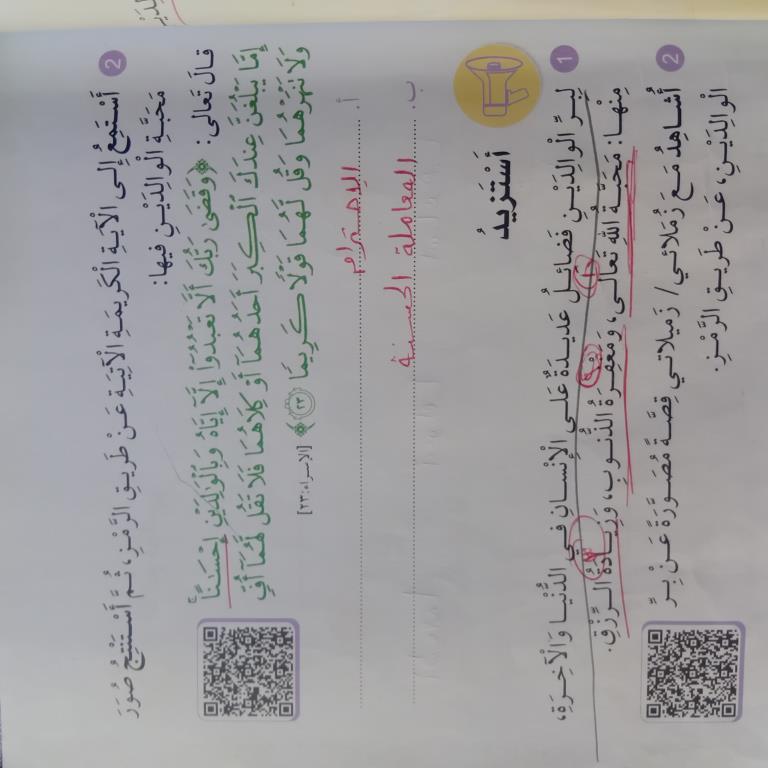 2 أَسْتَمِعُ إِلى الْآيَةِ الْكَريمَةِ الْآتِيَةِ عَنْ طَريقِ الرَّمْزِ، ثُمَّ أَسْتَنْتِجُ صُوَرَ
مَحَبَّةِ الْوالِدَيْنِ فيها:
قالَ تَعالى: ﴿وَقَضَىٰ رَبُّكَ أَلَّا تَعْبُدُوٓا۟ إِلَّآ إِيَّاهُ وَبِٱلْوَٰلِدَيْنِ إِحْسَـٰنًا ۚ
إِمَّا يَبْلُغَنَّ عِندَكَ ٱلْكِبَرَ أَحَدُهُمَآ أَوْ كِلَاهُمَا فَلَا تَقُل لَّهُمَآ أُفٍّ
وَلَا تَنْهَرْهُمَا وَقُل لَّهُمَا قَوْلًا كَرِيمًا ٢٣﴾
[الإسراء: ٢٣]
أ. الاحترام
ب. المعاملة الحسنة
أَسْتَزيدُ
1 لِبِرِّ الْوالِدَيْنِ فَضائِلُ عَديدَةٌ عَلى الْإِنْسانِ في الدُّنْيا وَالْآخِرَةِ،
مِنْها: مَحَبَّةُ اللهِ تَعالى، وَمَغْفِرَةُ الذُّنوبِ، وَزِيادَةُ الرِّزْقِ.
2 أُشاهِدُ مَعَ زُمَلائي/ زَميلاتي قِصَّةً مُصَوَّرَةً عَنْ بِرِّ
الْوالِدَيْنِ، عَنْ طَريقِ الرَّمْزِ.